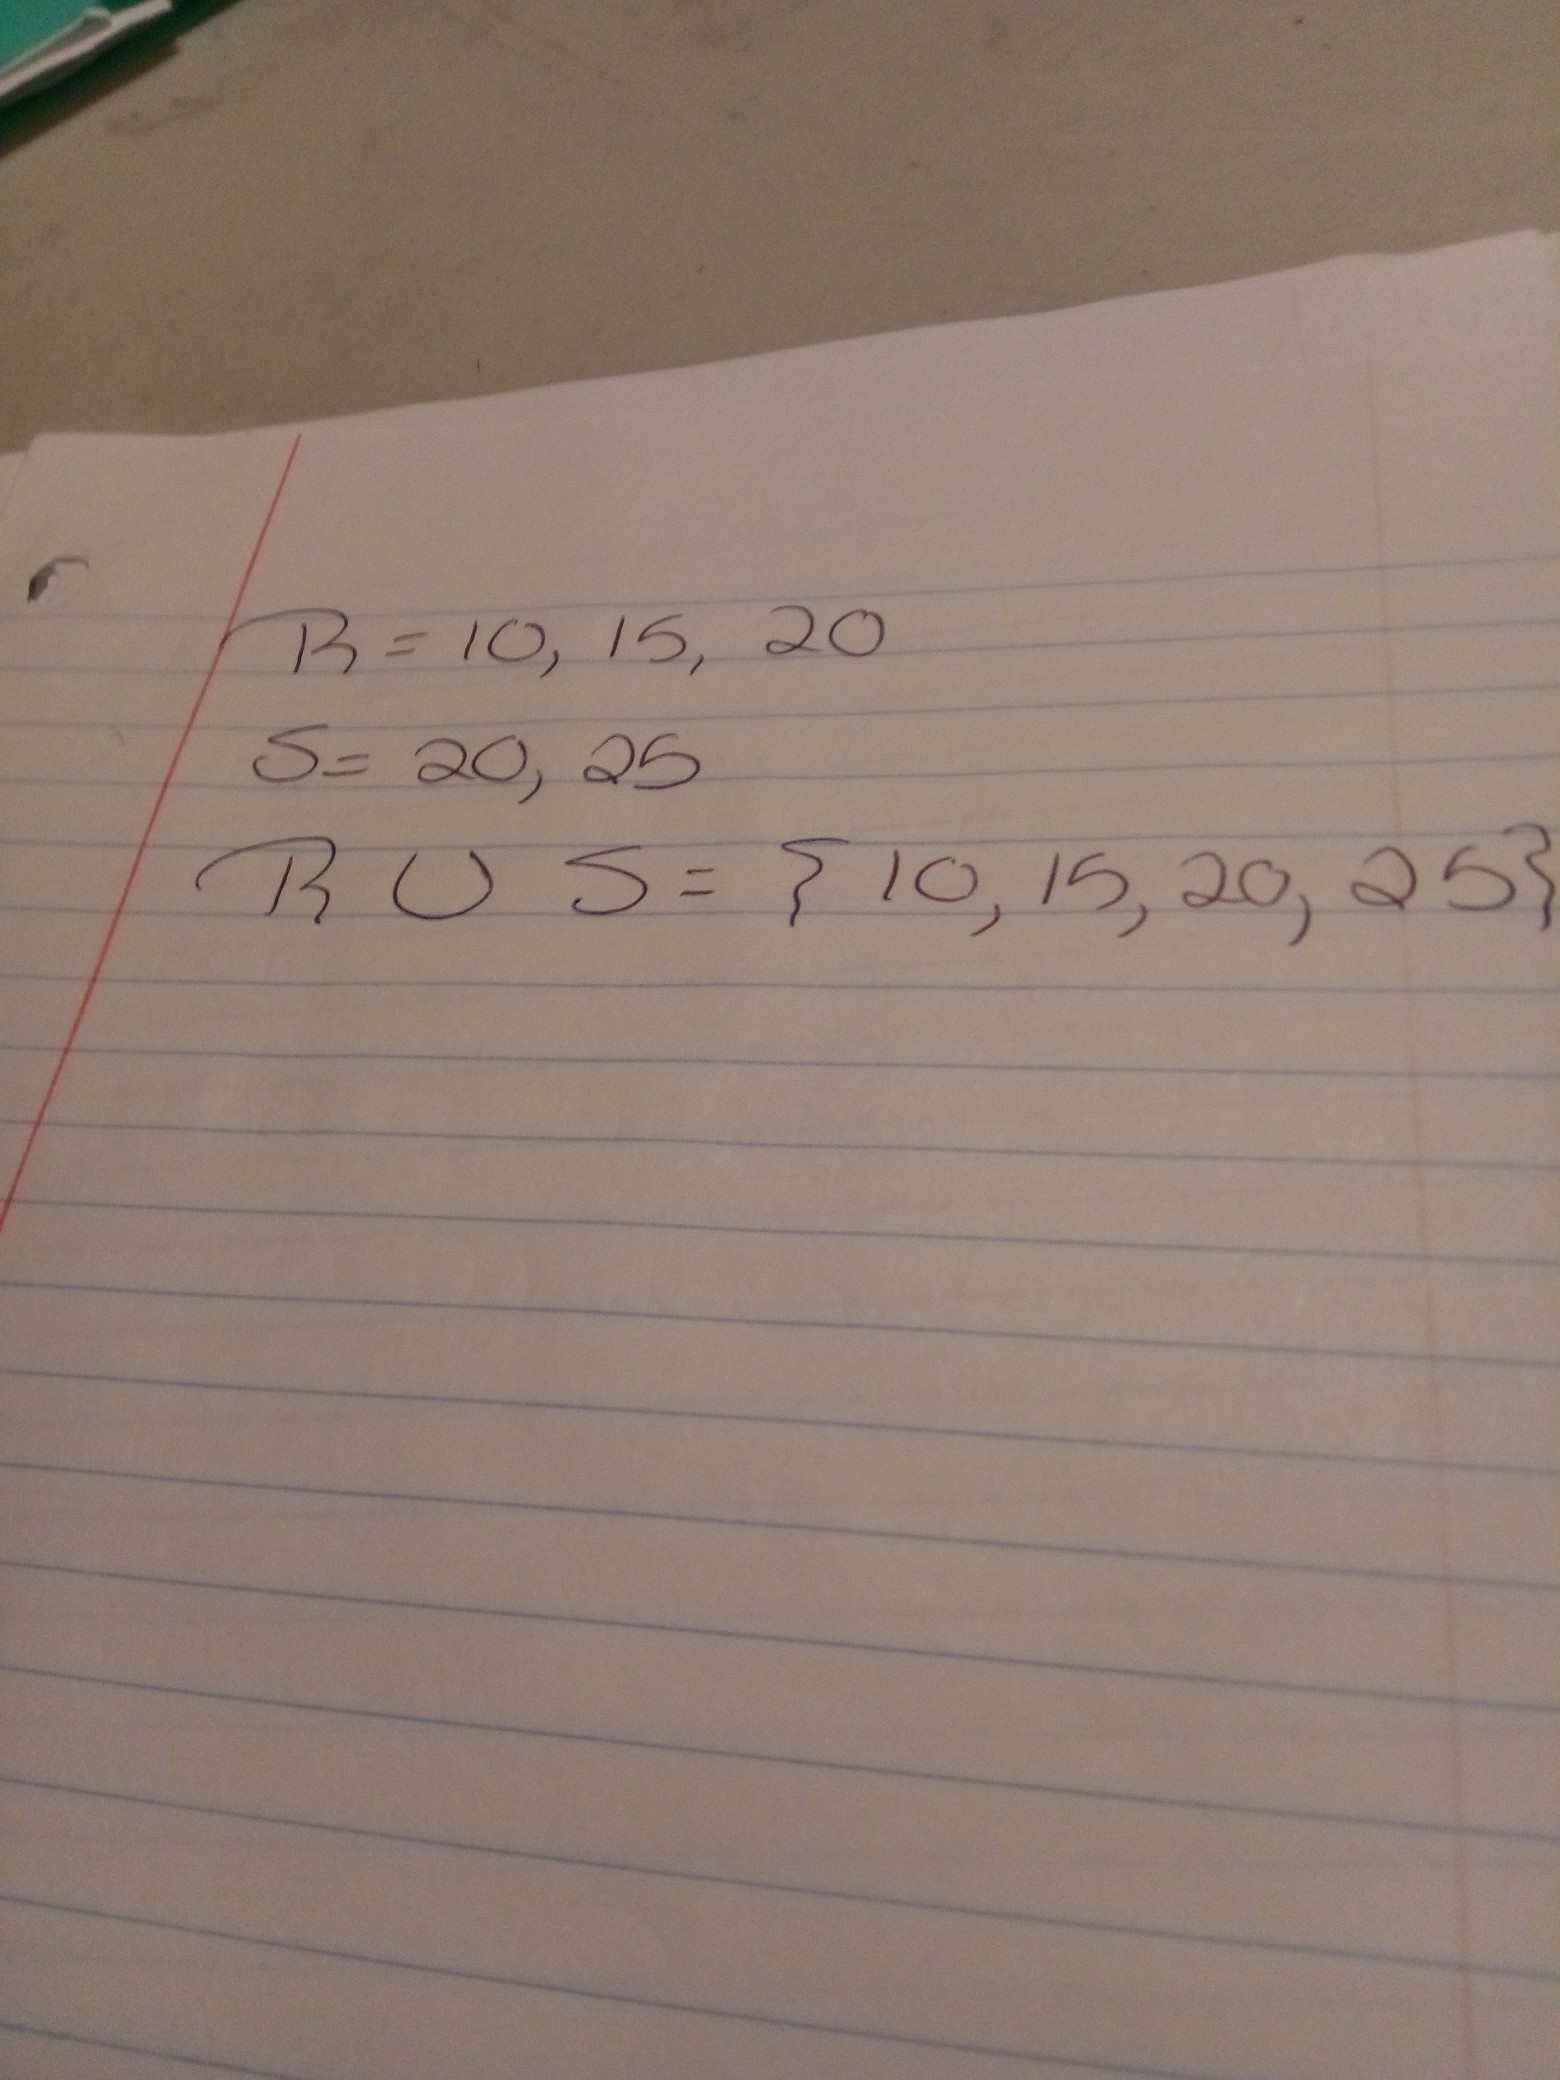 R = 10, 15, 20
S = 20, 25
R ∪ S = {10, 15, 20, 25}